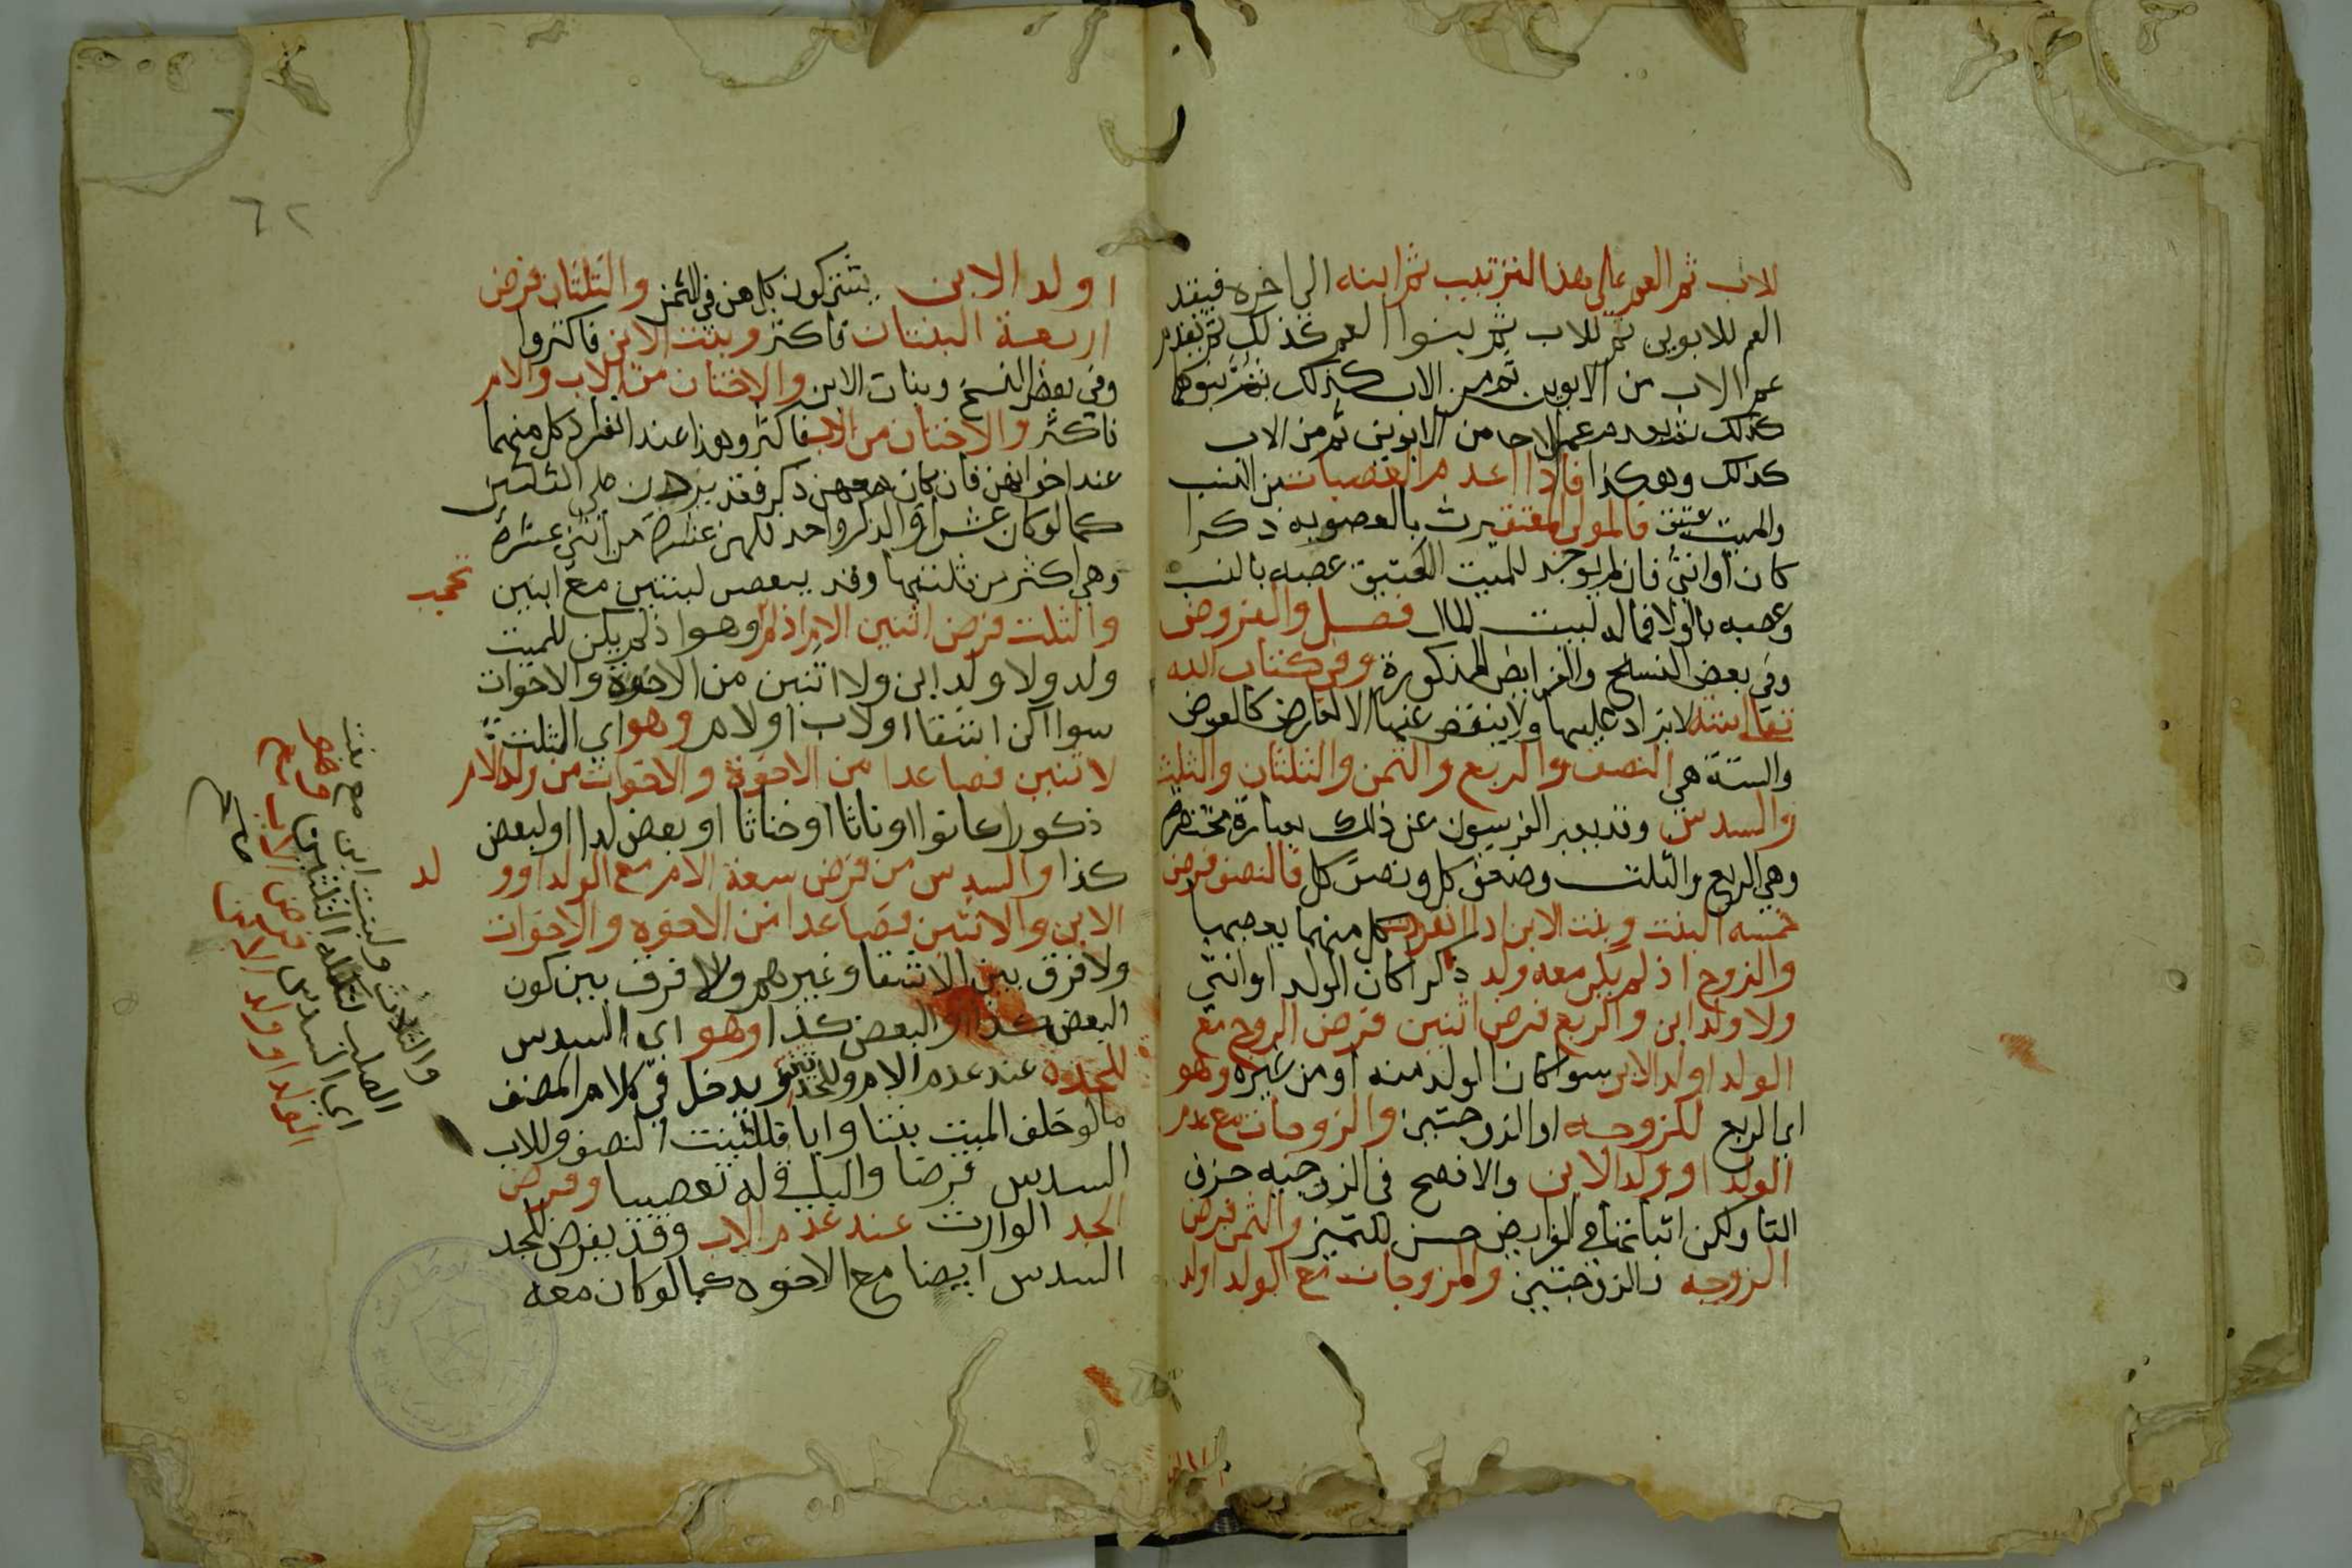 الاب ثم العم على هذا الترتيب ثم ابنه الى اخره فيقدم
العم للابوين ثم للاب ثم بنوا العم كذلك ثم يقدم
عم الاب من الابوين ثم من الاب كذلك ثم بنوهما
كذلك ثم يقدم عم من الابوين ثم من الاب
كذلك وهو كذا فاذا اعدم العصبات من النسب
والميت عتيق فالمولى المعتق يرث بالعصوبه ذكرا
كان او انثى فان لم يوجد للميت العتيق عصبه بالنسب
وعصبه بالولا فماله لبيت المال فصل والفروض
وفي بعض النسخ والفرايض المذكورة في كتاب الله
تعالى ستة لا يزاد عليها ولا ينقص عنها الا لعارض كالعول
والستة هي النصف والربع والثمن والثلثان والثلث
والسدس وقد يعبر الفرضيون عن ذلك بعبارة مختصرة
وهي الربع والثلث وضعف كل ونصف كل فالنصف فرض
خمسه البنت وبنت الابن اذا انفردت كل منهما يعصبها
والزوج اذ لم يكن معه ولد ذكرا كان الولد او انثى
ولا ولد ابن والربع فرض اثنين فرض الزوج مع
الولد او ولد الابن سوا كان الولد منه او من غيره وهو
اي الربع للزوجه او الزوجتين والزوجات مع عدم
الولد او ولد الابن والافصح في الزوجيه حزف
التا ولكن اثباتها في الفرايض حسن للتميز والثمن فرض
الزوجه والزوجتين والزوجات مع الولد او ولد
او ولد الابن يشتركون كلهن في الثمن والثلثان فرض
اربعة البنتان فاكثر وبنت الابن فاكثروا
وفي بعض النسخ وبنات الابن والاختان من الاب والام
فاكثر والاختان من الاب فاكثر وهذا عند انفراد كل منهما
عند اخواتهن فان كان معهن ذكر فقد يزدن على الثلثين
كما لو كان عشرا والذكر واحد فلهن عشرة من اثني عشرة
وهي اكثر من ثلثيها وقد ينقص لبنتين مع ابنين
والثلث فرض اثنين الام اذ لم وهو اذ لم يكن للميت
تحجب
ولد ولا ولد ابن ولا اثنين من الاخوة والاخوات
سوا اكن اشقا او لاب او لام وهو اي الثلث
لاثنين فصاعدا من الاخوة والاخوات من ولد الام
ذكورا كانوا او اناثا او خناثا او بعض لدا او لبعض
كذا والسدس من فرض سبعة الام مع الولد او و
لد
الابن والاثنين فصاعدا من الاخوه والاخوات
ولا فرق بين الاشقا وغيرهم ولا فرق بين كون
البعض كذا والبعض كذا وهو اي السدس
للجدة عند عدم الام وللجدتين ويدخل في كلام المصنف
ما لو خلف الميت بنتا وابا فللبنت النصف وللاب
السدس فرضا والباقي له تعصيبا وفرض
الجد الوارث عند عدم الاب وقد يفرض للجد
السدس ايضا مع الاخوه كما لو كان معه
والثلاث ولبنت ابن مع بنت
الصلب تكملة الثلثين
اي السدس فرض الاب مع
الولد او ولد الابن
٦٢